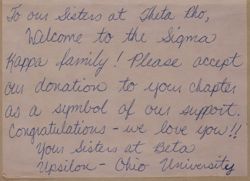 To our Sisters at Theta Rho,
Welcome to the Sigma
Kappa family! Please accept
our donation to your chapter
as a symbol of our support.
Congratulations - we love you!!
Your Sisters at Beta
Upsilon - Ohio University